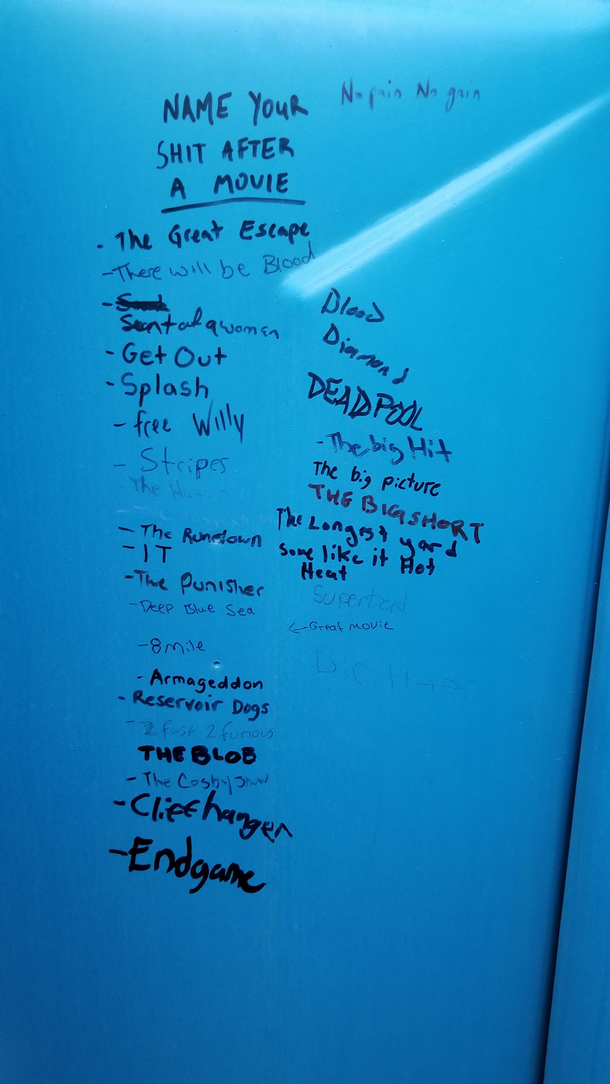 NAME YOUR
SHIT AFTER
A MOVIE
No pain No gain
- The Great Escape
- There will be Blood
- Sent of a women
- Get Out
- Splash
- free Willy
- Stripes
The
- The Rundown
- IT
- The Punisher
- Deep Blue Sea
- 8 mile
- Armageddon
- Reservoir Dogs
- 2 fast 2 furious
THE BLOB
- The Cosby Show
- Cliffhanger
- Endgame
Blood
Diamond
DEADPOOL
- The big Hit
The big picture
THE BIG SHORT
The Longest yard
Some like it Hot
Heat
Superbad
← Great movie